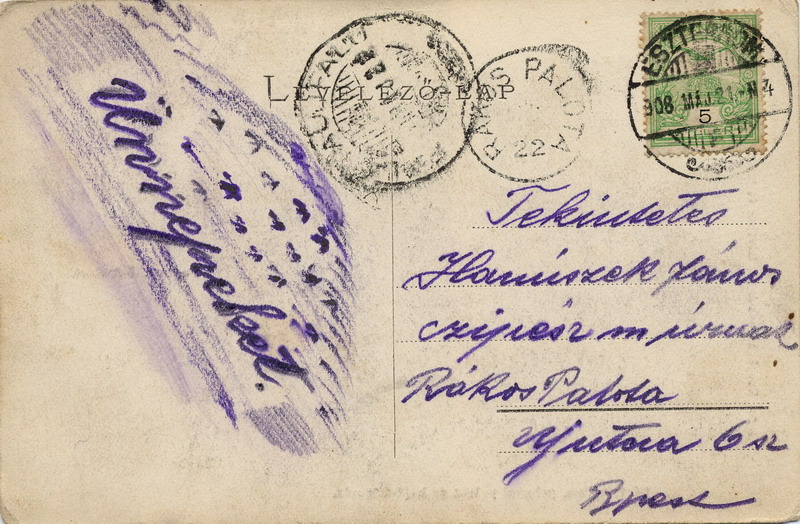 LEVELEZŐ-LAP
RÁKOS PALOTA
22
ESZTERGOM
908 MÁJ. 21
5
Ünnepeket.
Tekintetes
Hanúszek János
czipész m úrnak
Rákos Palota
6 sz
Bpest